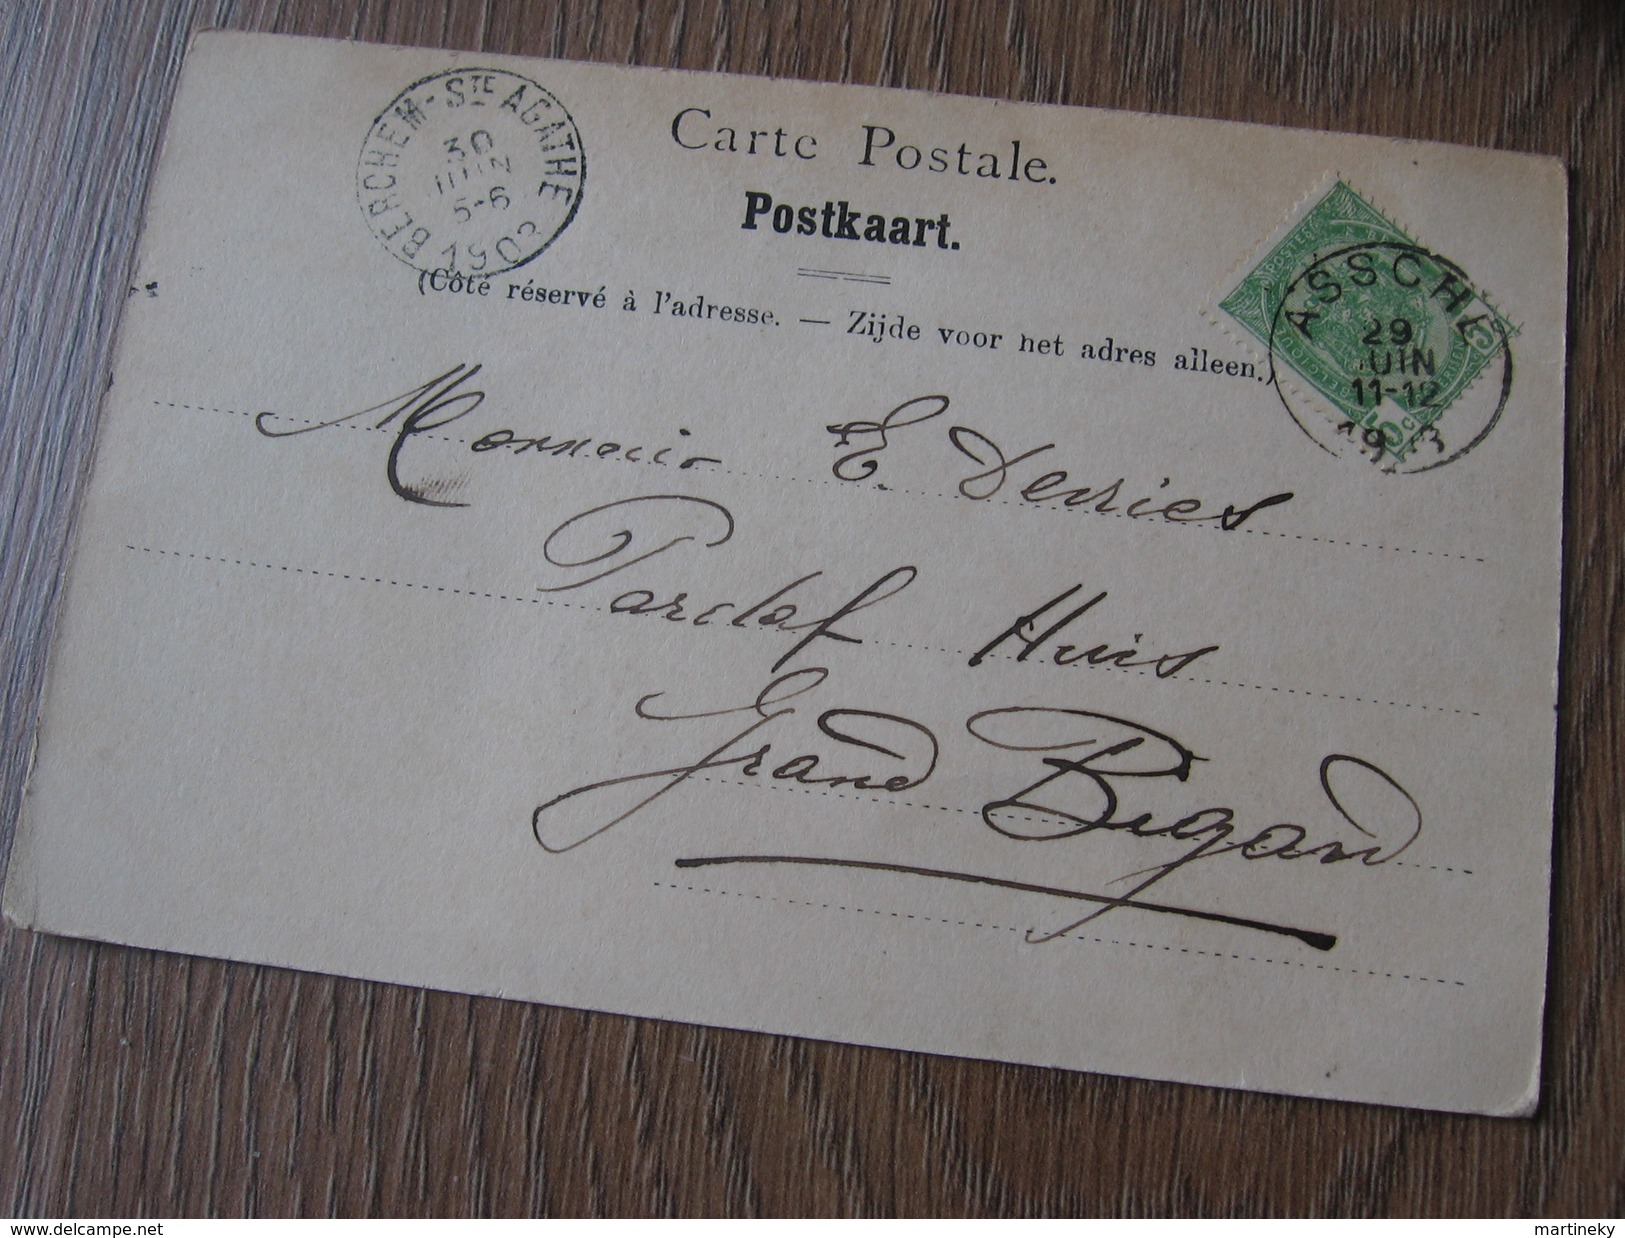 BERCHEM-STE AGATHE
30
JUIN
5-6
1903
Carte Postale.
Postkaart.
(Côté réservé à l'adresse. — Zijde voor het adres alleen.)
ASSCHE
29
JUIN
11-12
Monsieur E. Devries
Huis
Grand Bigard
www.delcampe.net
martineky